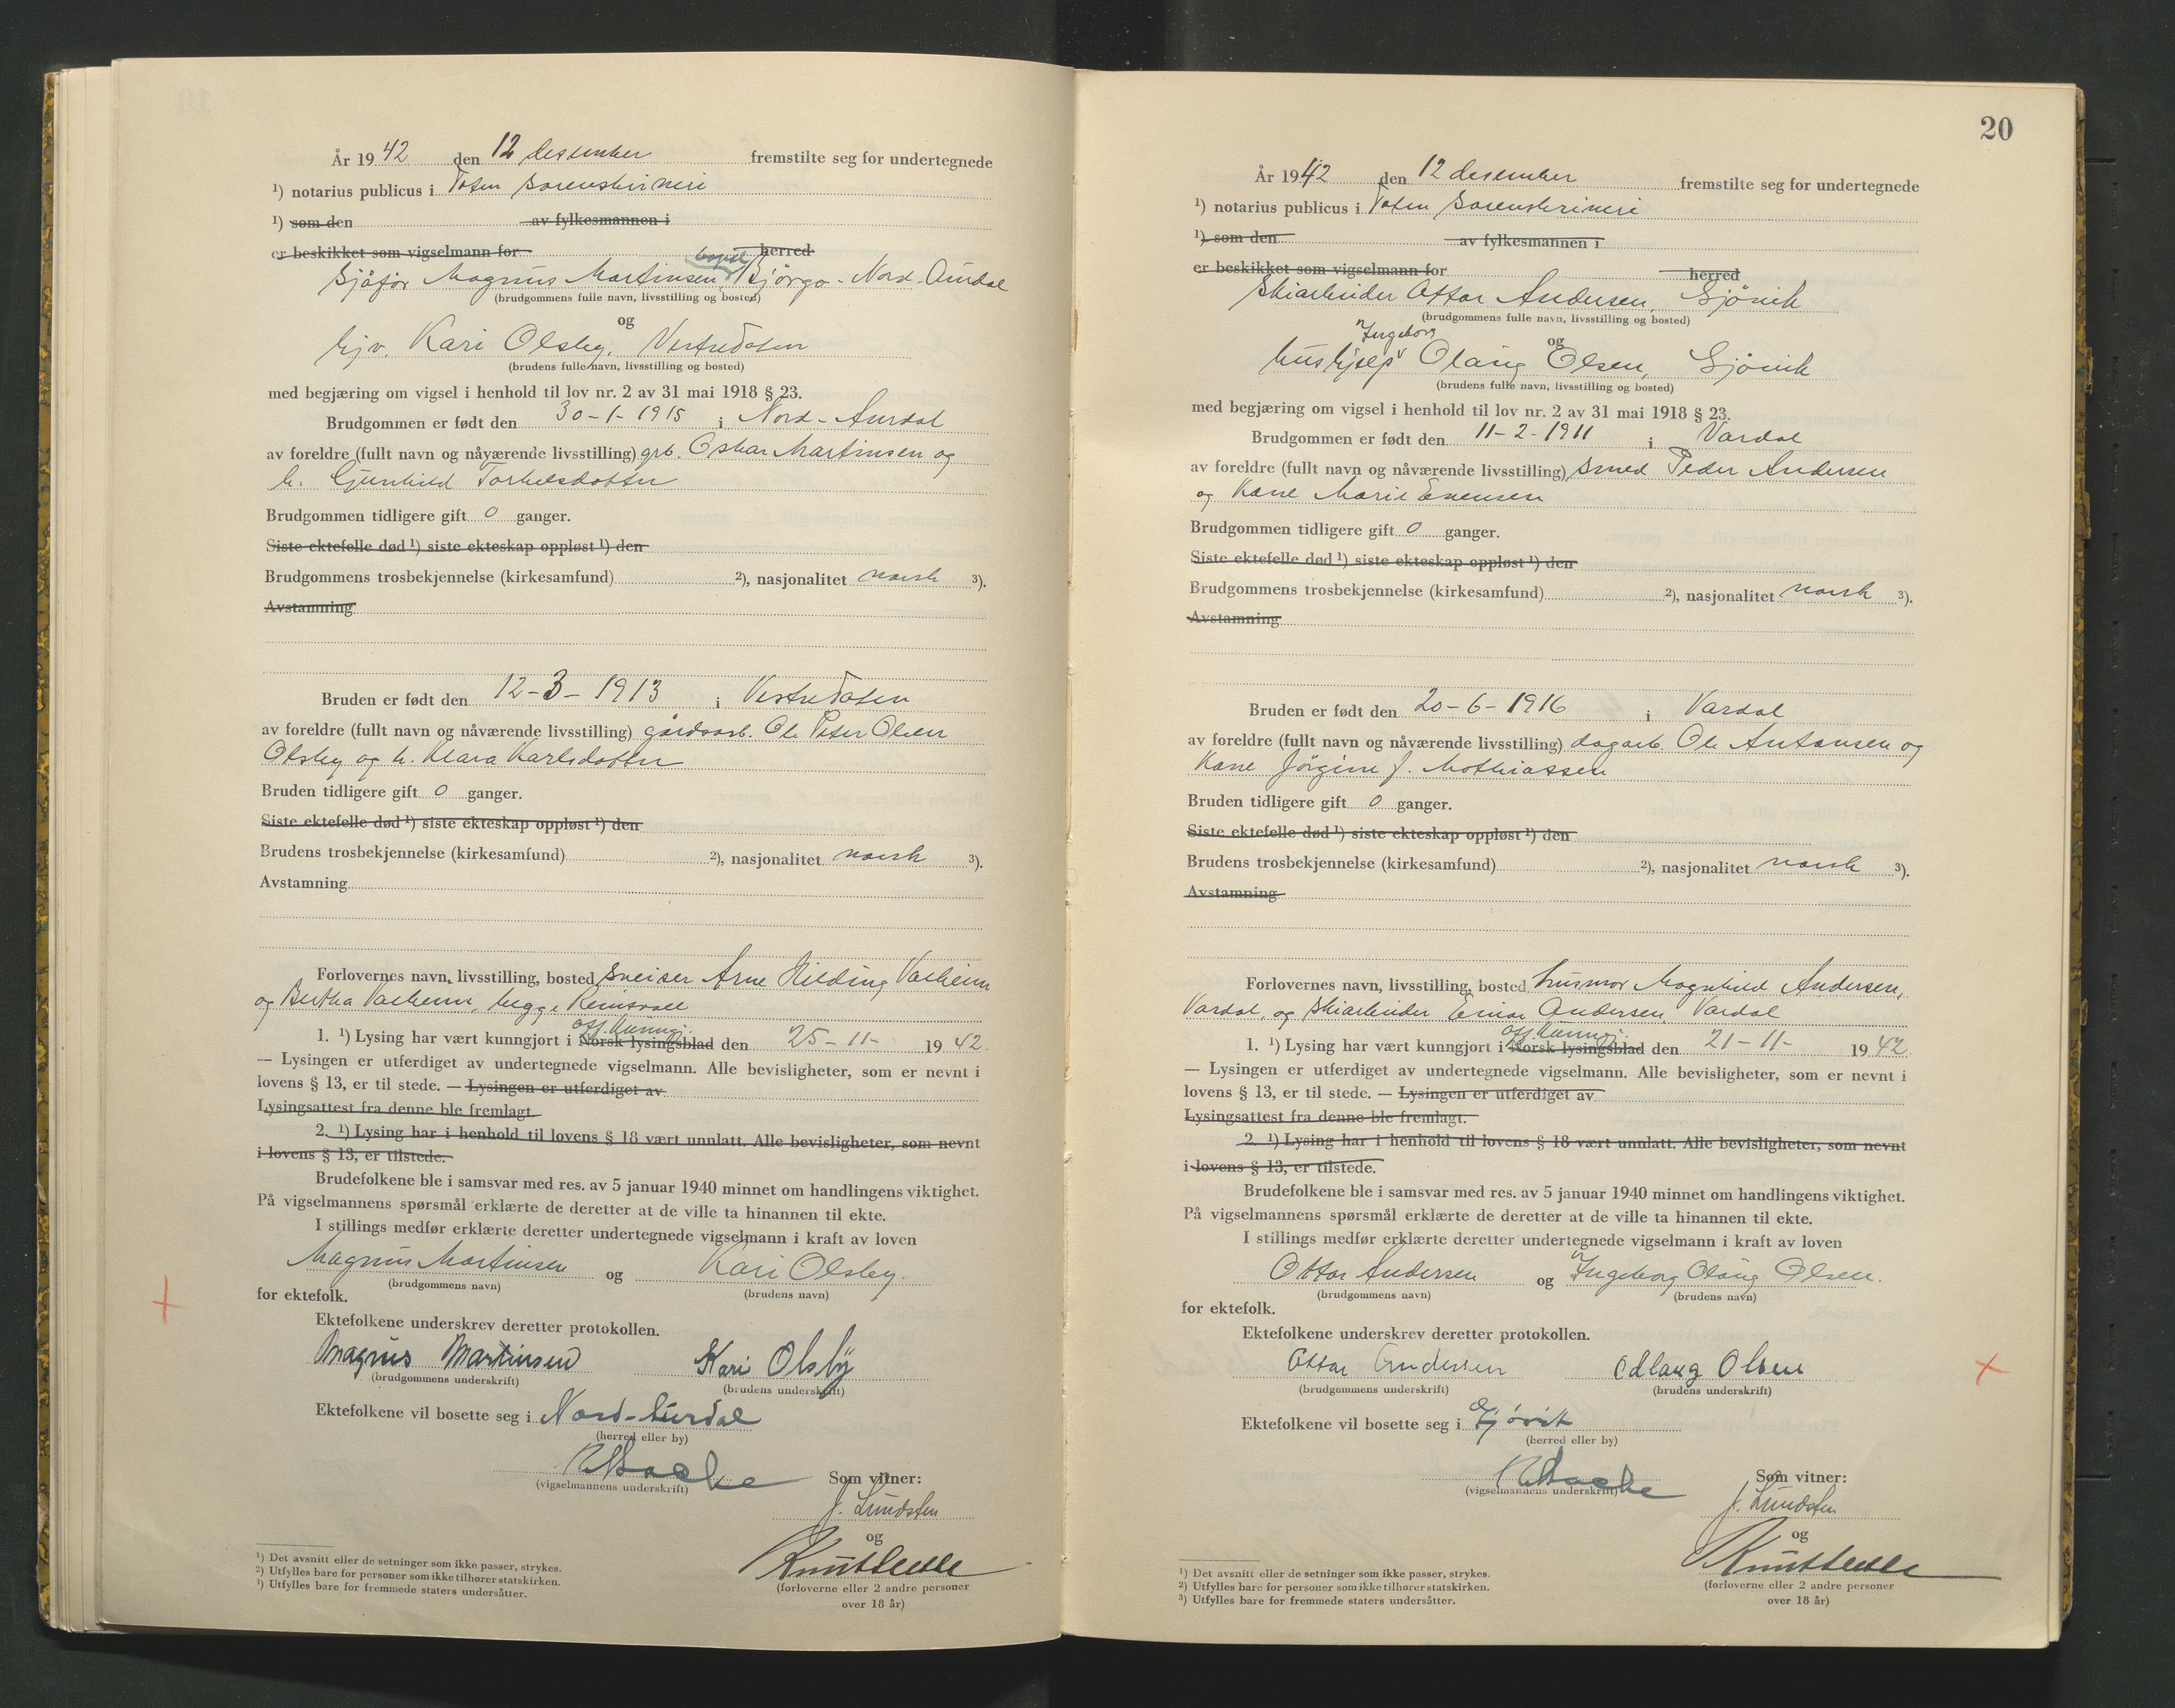 År 1942 den 12 desember fremstilte seg for undertegnede
¹) notarius publicus i Toten sorenskriveri
¹) som den av fylkesmannen i
er beskikket som vigselmann for herred
Sjåfør Magnus Martinsen, Bjørgo - Nord-Aurdal
(brudgommens fulle navn, livsstilling og bosted)
og
hjv. Kari Olsby, Vestre Toten
(brudens fulle navn, livsstilling og bosted)
med begjæring om vigsel i henhold til lov nr. 2 av 31 mai 1918 § 23.
Brudgommen er født den 30-1-1915 i Nord-Aurdal
av foreldre (fullt navn og nåværende livsstilling) grb. Oskar Martinsen og
h. Gunhild Torkelsdotter
Brudgommen tidligere gift 0 ganger.
Siste ektefelle død ¹) siste ekteskap oppløst ¹) den
Brudgommens trosbekjennelse (kirkesamfund) ²), nasjonalitet norsk ³).
Avstamning
Bruden er født den 12-3-1913 i Vestre Toten
av foreldre (fullt navn og nåværende livsstilling) gårdsarb. Ole Peter Olsen
Olsby og h. Klara Karlsdotter
Bruden tidligere gift 0 ganger.
Siste ektefelle død ¹) siste ekteskap oppløst ¹) den
Brudens trosbekjennelse (kirkesamfund) ²), nasjonalitet norsk ³).
Avstamning
Forlovernes navn, livsstilling, bosted sveiser Arne Hilding Valheim
og Bertha Valheim, begge Reinsvoll
off. kunngj.
1. ¹) Lysing har vært kunngjort i Norsk lysingsblad den 25-11- 1942.
— Lysingen er utferdiget av undertegnede vigselmann. Alle bevisligheter, som er nevnt i
lovens § 13, er til stede. — Lysingen er utferdiget av
Lysingsattest fra denne ble fremlagt
2. ¹) Lysing har i henhold til lovens § 18 vært unnlatt. Alle bevisligheter, som nevnt
i lovens § 13, er tilstede.
Brudefolkene ble i samsvar med res. av 5 januar 1940 minnet om handlingens viktighet.
På vigselmannens spørsmål erklærte de deretter at de ville ta hinannen til ekte.
I stillings medfør erklærte deretter undertegnede vigselmann i kraft av loven
Magnus Martinsen og Kari Olsby.
(brudgommens navn) (brudens navn)
for ektefolk.
Ektefolkene underskrev deretter protokollen.
Magnus Martinsen Kari Olsby
(brudgommens underskrift) (brudens underskrift)
Ektefolkene vil bosette seg i Nord-Aurdal
(herred eller by)
(vigselmannens underskrift) Som vitner:
J. Lundsten
og
(forloverne eller 2 andre personer
over 18 år)
¹) Det avsnitt eller de setninger som ikke passer, strykes.
²) Utfylles bare for personer som ikke tilhører statskirken.
³) Utfylles bare for fremmede staters undersåtter.
20
År 1942 den 12 desember fremstilte seg for undertegnede
¹) notarius publicus i Toten sorenskriveri
¹) som den av fylkesmannen i
er beskikket som vigselmann for herred
Skiarbeider Ottar Andersen, Gjøvik
(brudgommens fulle navn, livsstilling og bosted)
Ingeborg
og
hushjelp Olaug Olsen, Gjøvik
(brudens fulle navn, livsstilling og bosted)
med begjæring om vigsel i henhold til lov nr. 2 av 31 mai 1918 § 23.
Brudgommen er født den 11-2-1911 i Vardal
av foreldre (fullt navn og nåværende livsstilling) smed Peder Andersen
og Kone Marie Evensen
Brudgommen tidligere gift 0 ganger.
Siste ektefelle død ¹) siste ekteskap oppløst ¹) den
Brudgommens trosbekjennelse (kirkesamfund) ²), nasjonalitet norsk ³).
Avstamning
Bruden er født den 20-6-1916 i Vardal
av foreldre (fullt navn og nåværende livsstilling) dagarb. Ole Antonsen og
Kone Jörgine f. Mathiassen
Bruden tidligere gift 0 ganger.
Siste ektefelle død ¹) siste ekteskap oppløst ¹) den
Brudens trosbekjennelse (kirkesamfund) ²), nasjonalitet norsk ³).
Avstamning
Forlovernes navn, livsstilling, bosted husmor Magnhild Andersen,
Vardal, og skiarbeider Einar Andersen, Vardal
off. kunngj.
1. ¹) Lysing har vært kunngjort i Norsk lysingsblad den 21-11- 1942.
— Lysingen er utferdiget av undertegnede vigselmann. Alle bevisligheter, som er nevnt i
lovens § 13, er til stede. — Lysingen er utferdiget av
Lysingsattest fra denne ble fremlagt.
2. ¹) Lysing har i henhold til lovens § 18 vært unnlatt. Alle bevisligheter, som nevnt
i lovens § 13, er tilstede.
Brudefolkene ble i samsvar med res. av 5 januar 1940 minnet om handlingens viktighet.
På vigselmannens spørsmål erklærte de deretter at de ville ta hinannen til ekte.
I stillings medfør erklærte deretter undertegnede vigselmann i kraft av loven
Ottar Andersen og Ingeborg Olaug Olsen.
(brudgommens navn) (brudens navn)
for ektefolk.
Ektefolkene underskrev deretter protokollen.
Ottar Andersen Odlaug Olsen
(brudgommens underskrift) (brudens underskrift)
Ektefolkene vil bosette seg i Gjøvik
(herred eller by)
(vigselmannens underskrift) Som vitner:
J. Lundsten
og
(forloverne eller 2 andre personer
over 18 år)
¹) Det avsnitt eller de setninger som ikke passer, strykes.
²) Utfylles bare for personer som ikke tilhører statskirken.
³) Utfylles bare for fremmede staters undersåtter.